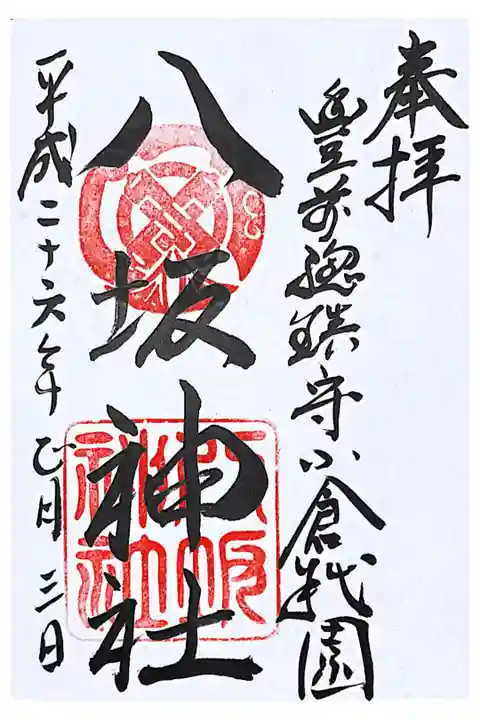 奉拝
豊前總鎮守小倉祇園
八坂神社
平成二十六年七月三日